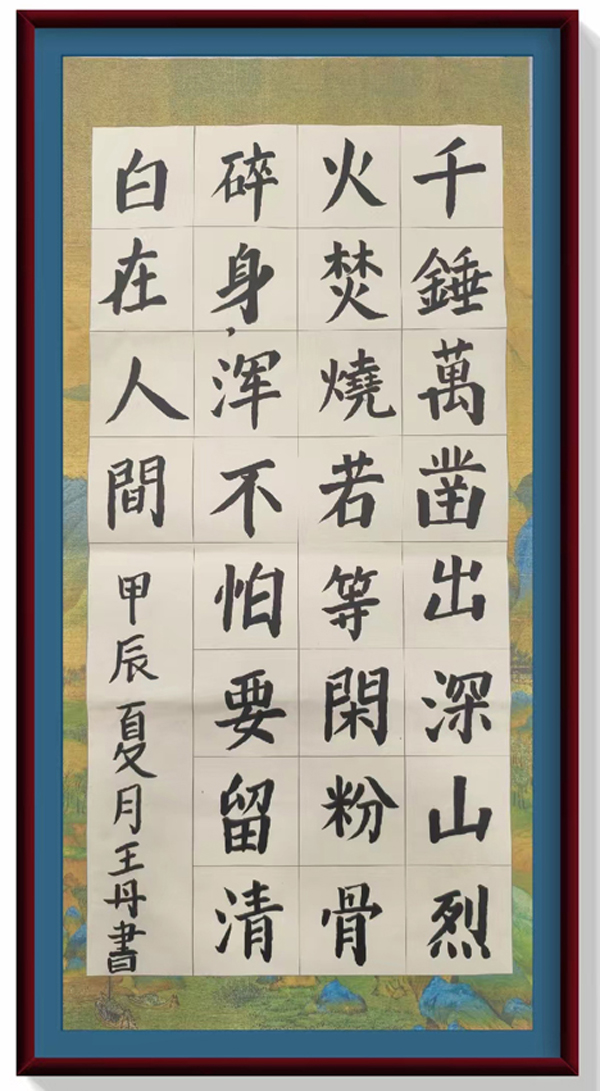 千錘萬凿出深山烈
火焚燒若等閑粉骨
碎身浑不怕要留清
白在人間
甲辰夏月王丹書